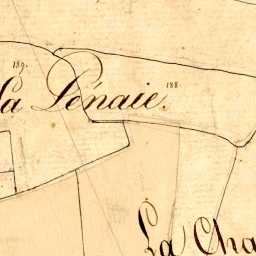 189.
188.
la Pénaie.
La Cha